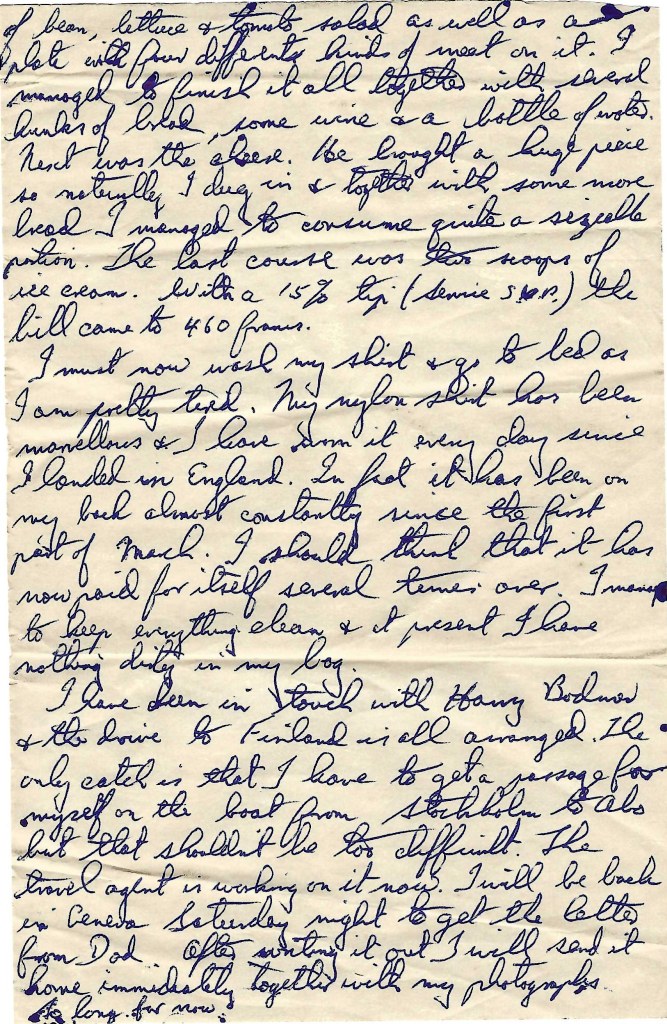 of bean, lettuce & tomato salad as well as a
plate with four differents kinds of meat on it. I
managed to finish it all together with several
hunks of bread, some wine & a bottle of water.
Next was the cheese. He brought a huge piece
so naturally I dug in & together with some more
bread I managed to consume quite a sizeable
portion. The last course was two scoops of
ice cream. With a 15% tip (Service S.V.P.) the
bill came to 460 francs.
I must now wash my shirt & go to bed as
I am pretty tired. My nylon shirt has been
marvellous & I have worn it every day since
I landed in England. In fact it has been on
my back almost constantly since the first
part of March. I should think that it has
now paid for itself several times over. I manage
to keep everything clean & at present I have
nothing dirty in my bag.
I have been in touch with Harry
& the drive to Finland is all arranged. The
only catch is that I have to get a passage for
myself on the boat from Stockholm to Abo
but that shouldn't be too difficult. The
travel agent is working on it now. I will be back
in Geneva Saturday night to get the letter
from Dad. After writing it out I will send it
home immediately together with my photographs.
So long for now.